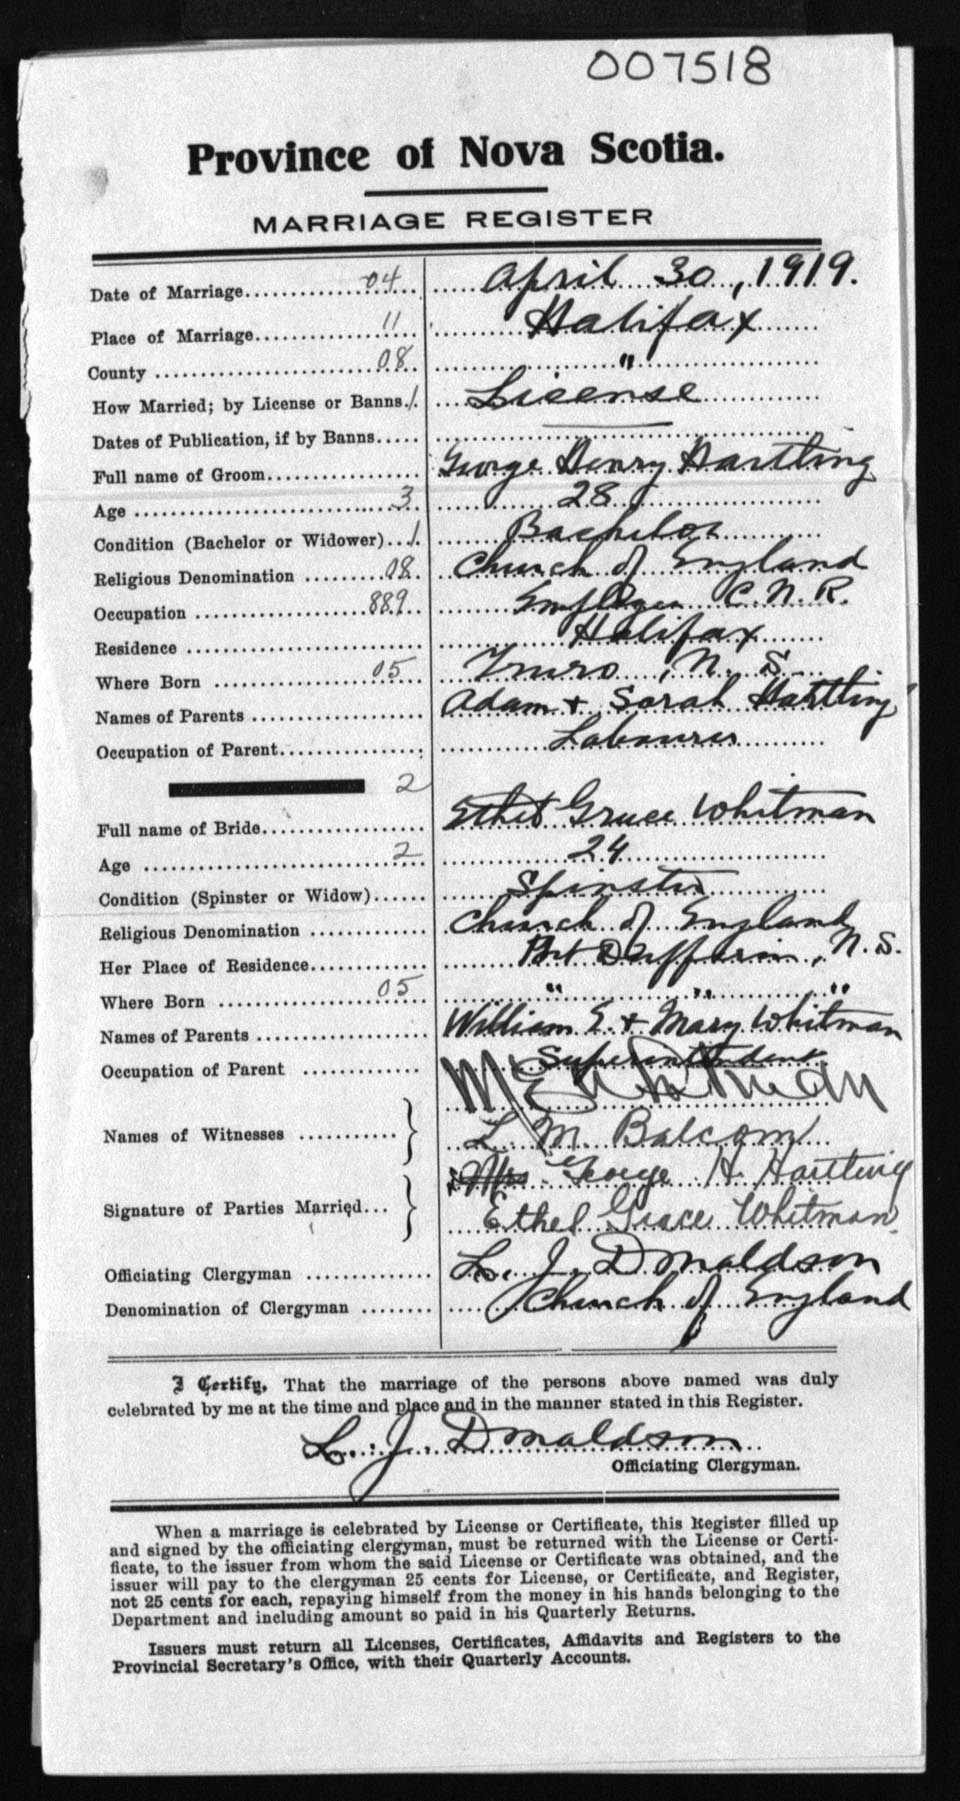 007518
Province of Nova Scotia.
MARRIAGE REGISTER
Date of Marriage.... 04 .... April 30, 1919.
Place of Marriage.... 11 .... Halifax
County .... 08 .... "
How Married; by License or Banns. 1. License
Dates of Publication, if by Banns..... ———
Full name of Groom.... George Henry Hartling
Age .... 3 .... 28
Condition (Bachelor or Widower)... 1. Bachelor
Religious Denomination .... 08. Church of England
Occupation .... 889 .... Employee C. N. R.
Residence .... Halifax
Where Born .... 05 .... Truro, N. S.
Names of Parents .... Adam + Sarah Hartling
Occupation of Parent.... Labourer
2
Full name of Bride.... Ethel Grace Whitman
Age .... 2 .... 24
Condition (Spinster or Widow)...... Spinster
Religious Denomination .... Church of England
Her Place of Residence.... Port Dufferin, N. S.
Where Born .... 05 .... " " "
Names of Parents .... William E. + Mary Whitman
Occupation of Parent .... Superintendent
M E Whitman
Names of Witnesses .... } L. M. Balcom
Mrs George H Hartling
Signature of Parties Married... } Ethel Grace Whitman
Officiating Clergyman .... L. J. Donaldson
Denomination of Clergyman .... Church of England
I Certify, That the marriage of the persons above named was duly
celebrated by me at the time and place and in the manner stated in this Register.
L. J. Donaldson
Officiating Clergyman.
When a marriage is celebrated by License or Certificate, this Register filled up
and signed by the officiating clergyman, must be returned with the License or Certi-
ficate, to the issuer from whom the said License or Certificate was obtained, and the
issuer will pay to the clergyman 25 cents for License, or Certificate, and Register,
not 25 cents for each, repaying himself from the money in his hands belonging to the
Department and including amount so paid in his Quarterly Returns.
Issuers must return all Licenses, Certificates, Affidavits and Registers to the
Provincial Secretary's Office, with their Quarterly Accounts.